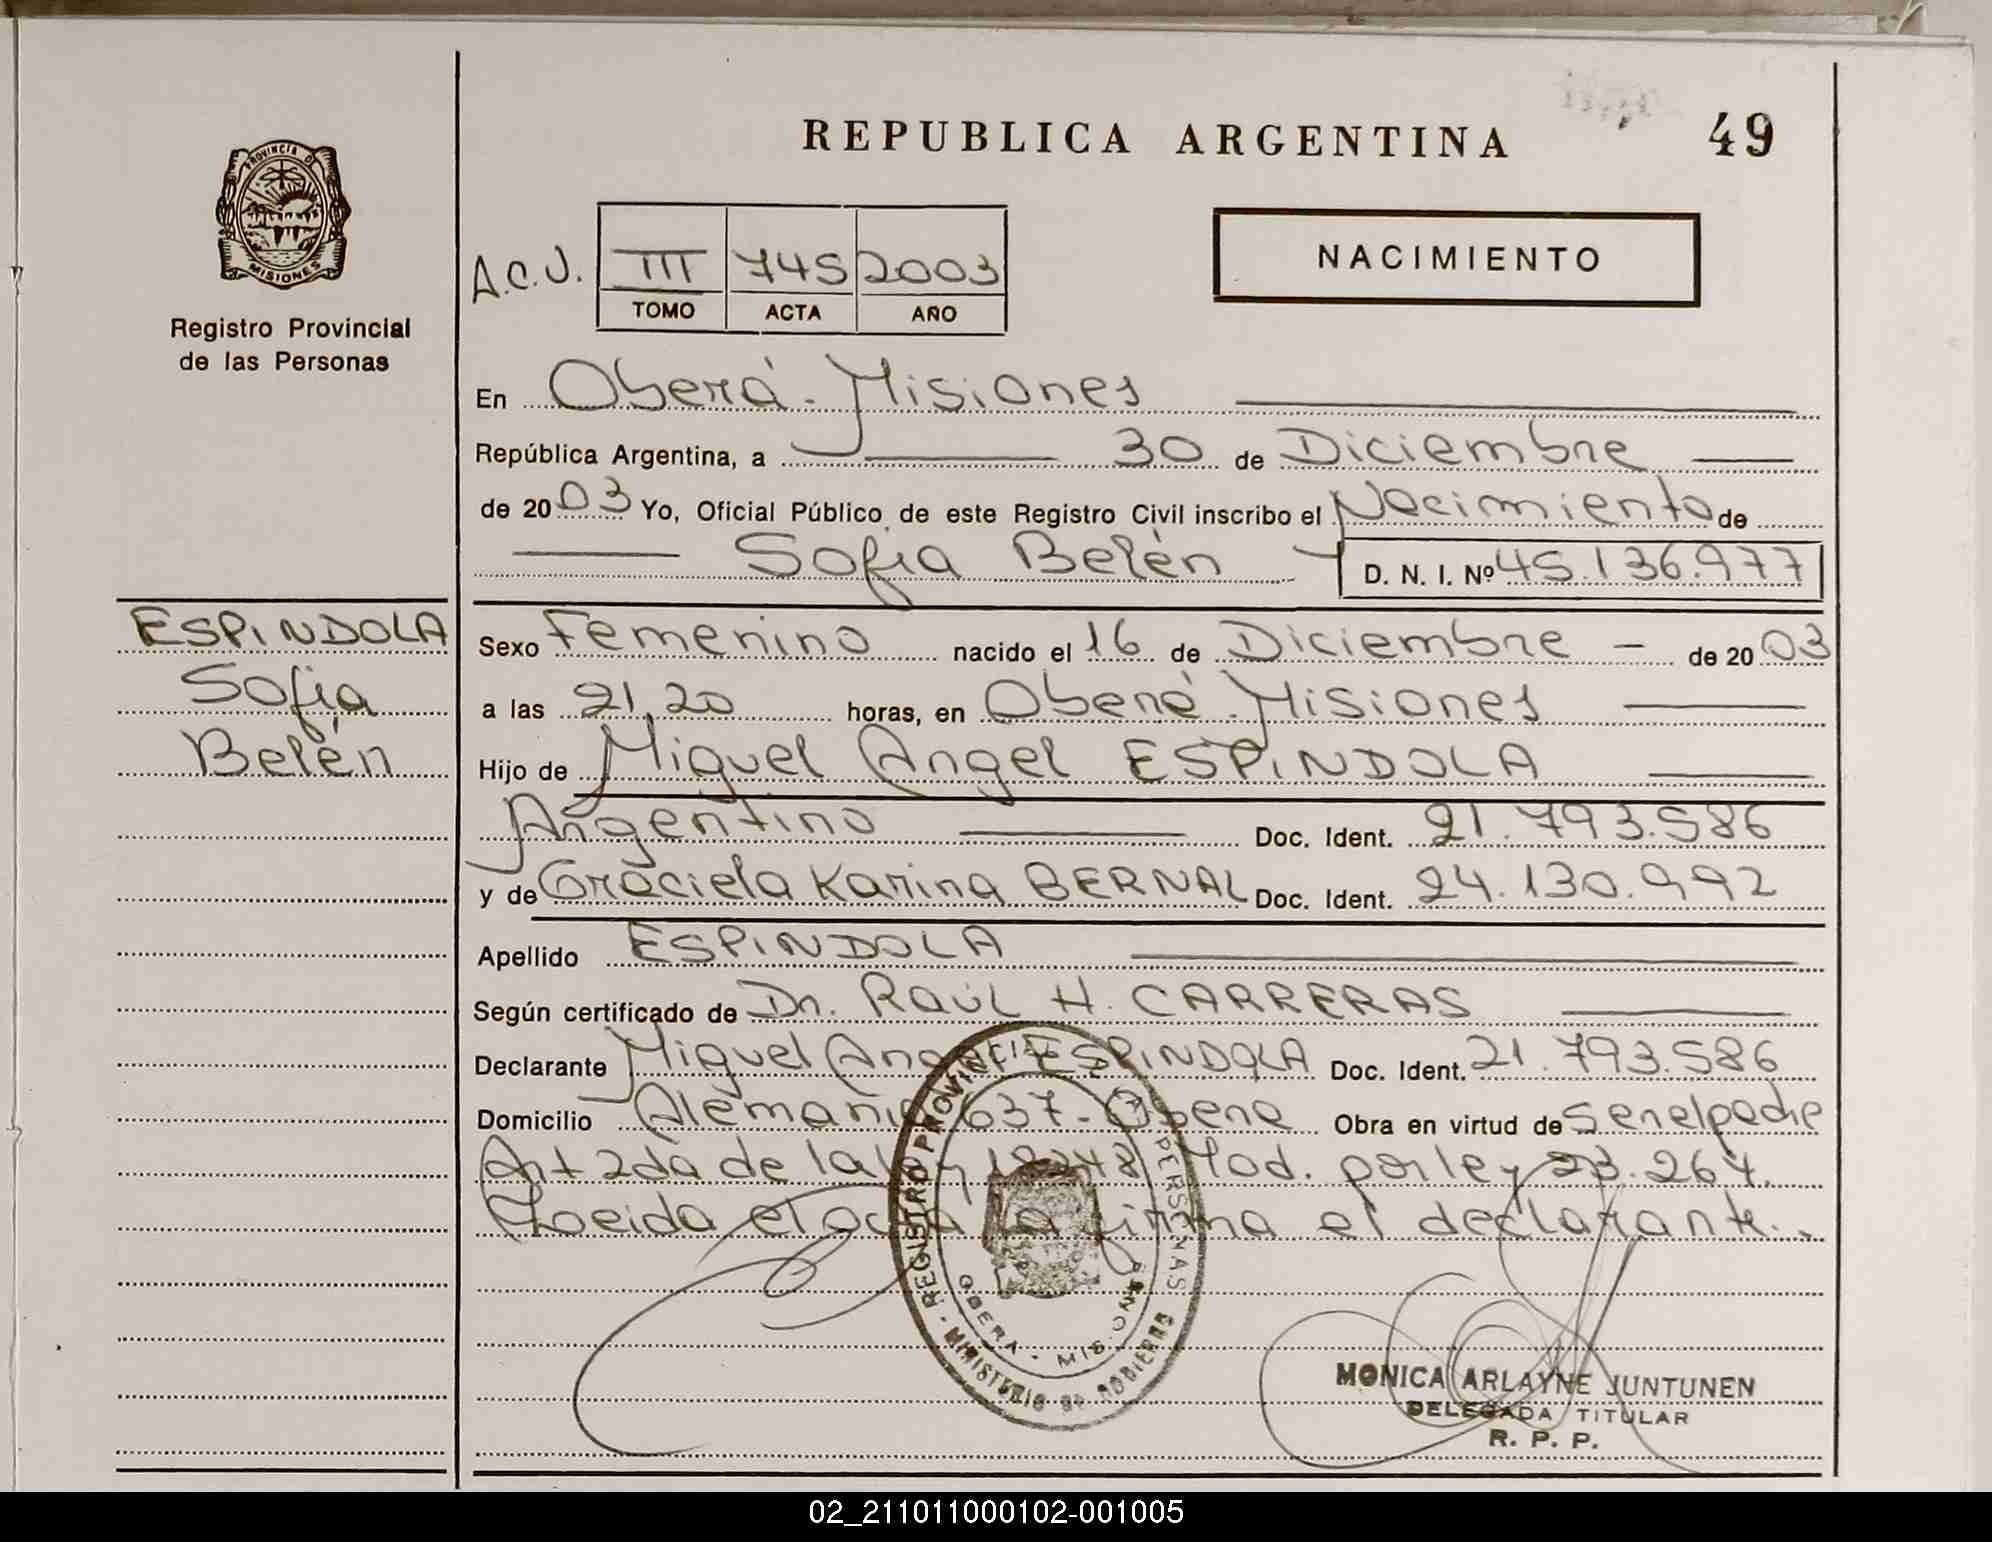 REPUBLICA ARGENTINA
49
PROVINCIA DE
MISIONES
Registro Provincial
de las Personas
A.C.J.
III 745 2003
TOMO ACTA AÑO
NACIMIENTO
En Oberá - Misiones
República Argentina, a 30 de Diciembre
de 2003 Yo, Oficial Público de este Registro Civil inscribo el Nacimiento de
Sofia Belén D. N. I. Nº 45.136.977
ESPINDOLA
Sofia
Belén
Sexo Femenino nacido el 16 de Diciembre - de 2003
a las 21,20 horas, en Oberá - Misiones
Hijo de Miguel Angel ESPINDOLA
Argentino Doc. Ident. 21.793.586
y de Graciela Karina BERNAL Doc. Ident. 24.130.992
Apellido ESPINDOLA
Según certificado de Dr. RAÚL H. CARRERAS
Declarante Miguel Angel ESPINDOLA Doc. Ident. 21.793.586
Domicilio Alemania 637 - Obera Obra en virtud de Ser el padre
Art 2do de la ley 18248 Mod. por ley 23.264.
Leida el acta la firma el declarante.
REGISTRO PROVINCIAL PERSONAS
OBERA - MISIONES
MINISTERIO DE GOBIERNO
MONICA ARLAYNE JUNTUNEN
DELEGADA TITULAR
R. P. P.
02_211011000102-001005